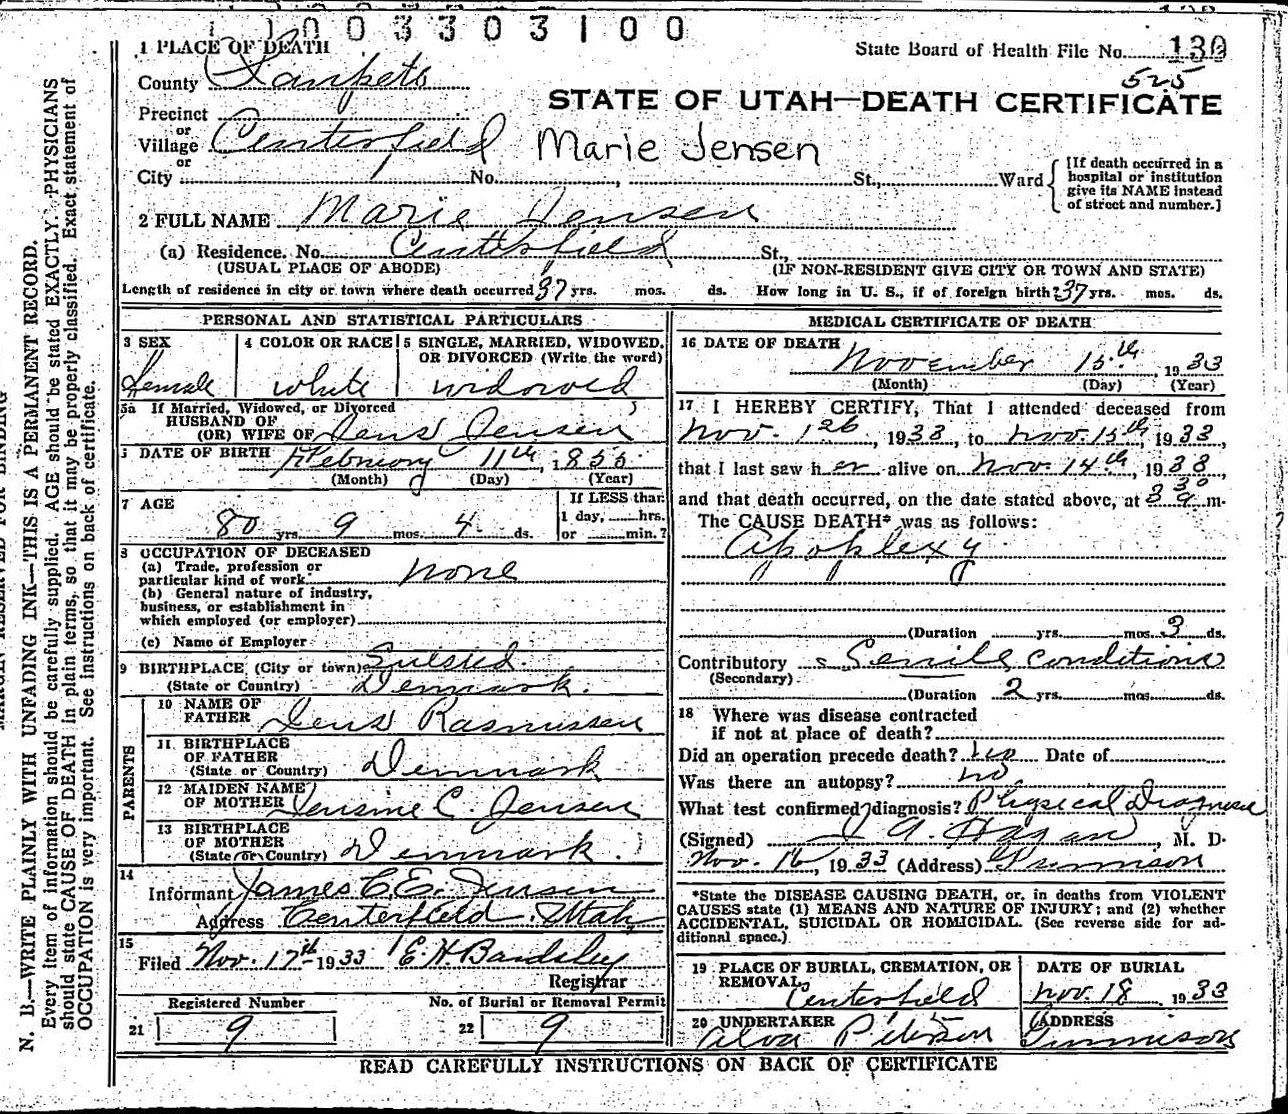 1 1 0 0 3 3 0 3 1 0 0
1 PLACE OF DEATH
State Board of Health File No. 130
County Sanpete
525
STATE OF UTAH—DEATH CERTIFICATE
Precinct
or
Village Centerfield Marie Jensen
or
City No. , St., Ward
[If death occurred in a
hospital or institution
give its NAME instead
of street and number.]
2 FULL NAME Marie Jensen
(a) Residence. No. Centerfield St.,
(USUAL PLACE OF ABODE) (IF NON-RESIDENT GIVE CITY OR TOWN AND STATE)
Length of residence in city or town where death occurred 37 yrs. mos. ds. How long in U. S., if of foreign birth? 37 yrs. mos. ds.
PERSONAL AND STATISTICAL PARTICULARS
3 SEX 4 COLOR OR RACE 5 SINGLE, MARRIED, WIDOWED,
OR DIVORCED (Write the word)
Female white widowed
5a If Married, Widowed, or Divorced
HUSBAND OF
(OR) WIFE OF Jens Jensen
DATE OF BIRTH February 11th, 1855
(Month) (Day) (Year)
7 AGE
80 yrs. 9 mos. 4 ds.
If LESS than
1 day, hrs.
or min.?
8 OCCUPATION OF DECEASED
(a) Trade, profession or
particular kind of work. none
(b) General nature of industry,
business, or establishment in
which employed (or employer)
(c) Name of Employer
9 BIRTHPLACE (City or town)
(State or Country) Denmark.
PARENTS
10 NAME OF
FATHER Jens Rasmussen
11 BIRTHPLACE
OF FATHER
(State or Country) Denmark
12 MAIDEN NAME
OF MOTHER C. Jensen
13 BIRTHPLACE
OF MOTHER
(State or Country) Denmark.
14
Informant James C. E. Jensen
Address Centerfield Utah
15
Filed Nov. 17th 1933 E. H. Bardsley
Registrar
Registered Number No. of Burial or Removal Permit
21 9 22 9
MEDICAL CERTIFICATE OF DEATH
16 DATE OF DEATH
November 15th, 1933
(Month) (Day) (Year)
17 I HEREBY CERTIFY, That I attended deceased from
Nov. , 1933, to Nov. 15th, 1933,
that I last saw her alive on Nov. 14th, 1933,
and that death occurred, on the date stated above, at 3 30 a m.
The CAUSE DEATH* was as follows:
Apoplexy
(Duration yrs. mos. 3 ds.
Contributory Senile conditions
(Secondary)
(Duration 2 yrs. mos. ds.
18 Where was disease contracted
if not at place of death?
Did an operation precede death? no Date of
Was there an autopsy? no
What test confirmed diagnosis? Physical Diagnosis
(Signed) A. Hagan, M. D.
Nov. 16, 1933 (Address) Gunnison
*State the DISEASE CAUSING DEATH, or, in deaths from VIOLENT
CAUSES state (1) MEANS AND NATURE OF INJURY; and (2) whether
ACCIDENTAL, SUICIDAL OR HOMICIDAL. (See reverse side for ad-
ditional space.)
19 PLACE OF BURIAL, CREMATION, OR
REMOVAL
Centerfield
DATE OF BURIAL
Nov. 18, 1933
20 UNDERTAKER
Alva Peterson
ADDRESS
Gunnison
READ CAREFULLY INSTRUCTIONS ON BACK OF CERTIFICATE
MARGIN RESERVED FOR BINDING
N. B.—WRITE PLAINLY WITH UNFADING INK—THIS IS A PERMANENT RECORD.
Every item of information should be carefully supplied. AGE should be stated EXACTLY. PHYSICIANS
should state CAUSE OF DEATH in plain terms, so that it may be properly classified. Exact statement of
OCCUPATION is very important. See instructions on back of certificate.